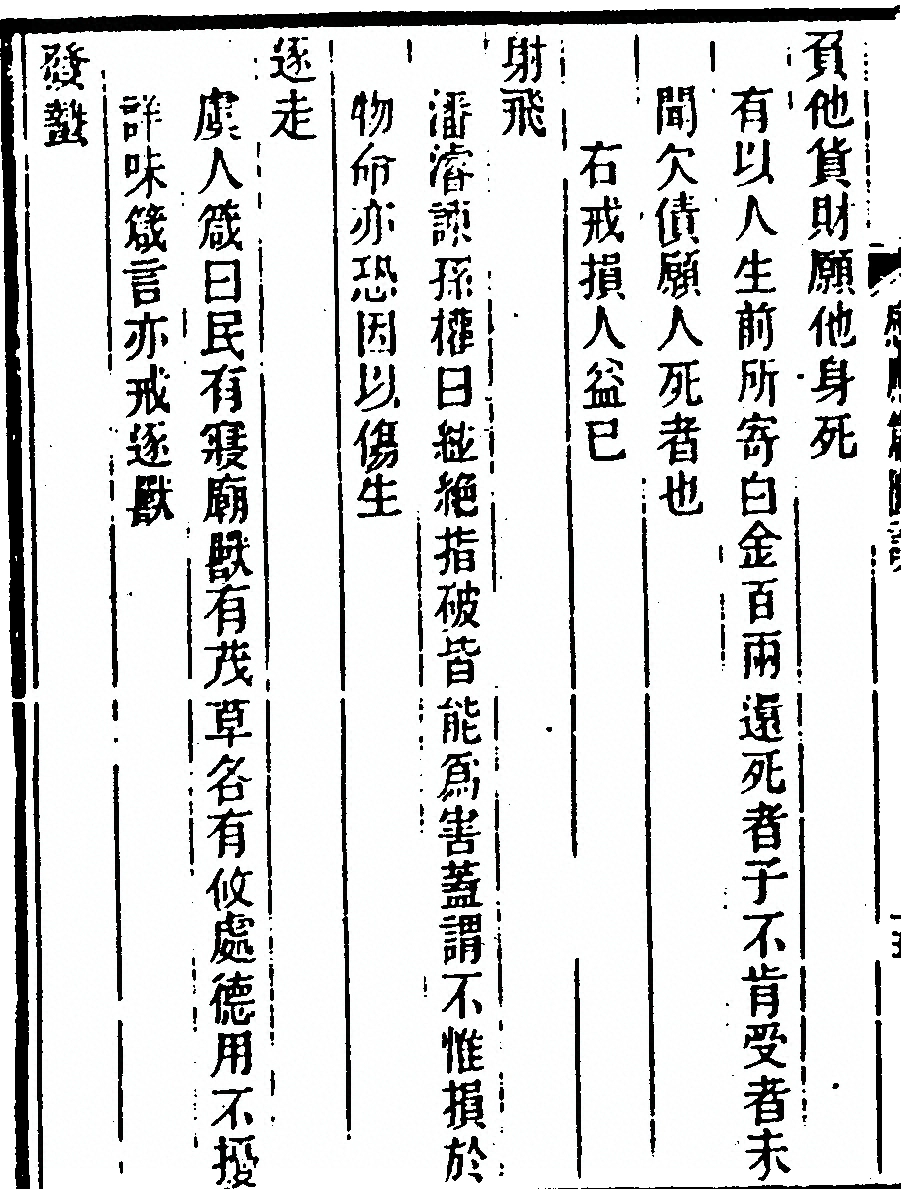 負他貨財願他身死
有以人生前所寄白金百兩還死者子不肯受者未
聞欠債願人死者也
右戒損人益已
射飛
潘濬諫孫權曰絃絶指破皆能爲害蓋謂不惟損於
物命亦恐因以傷生
逐走
虞人箴曰民有寢廟獸有茂草各有攸處德用不擾
詳味箴言亦戒逐獸
發蟄